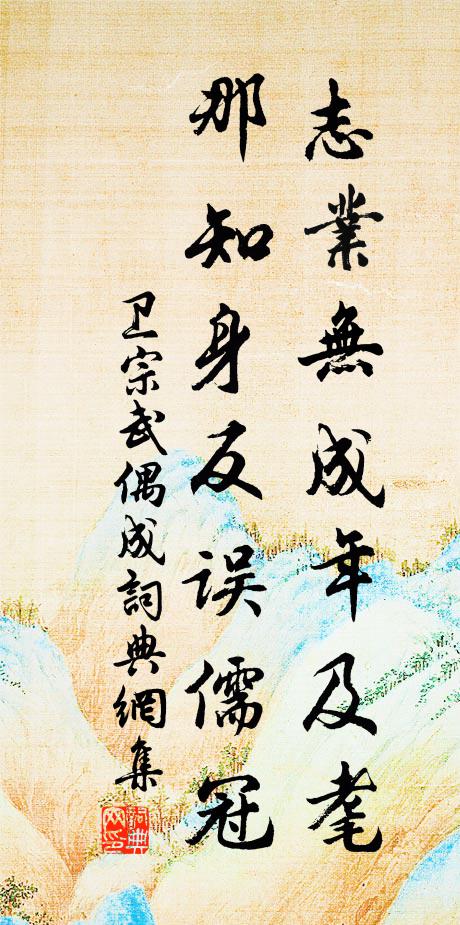 志業無成年及耄
那知身反误儒冠
卫宗武偶成詞典網集
詞典网印